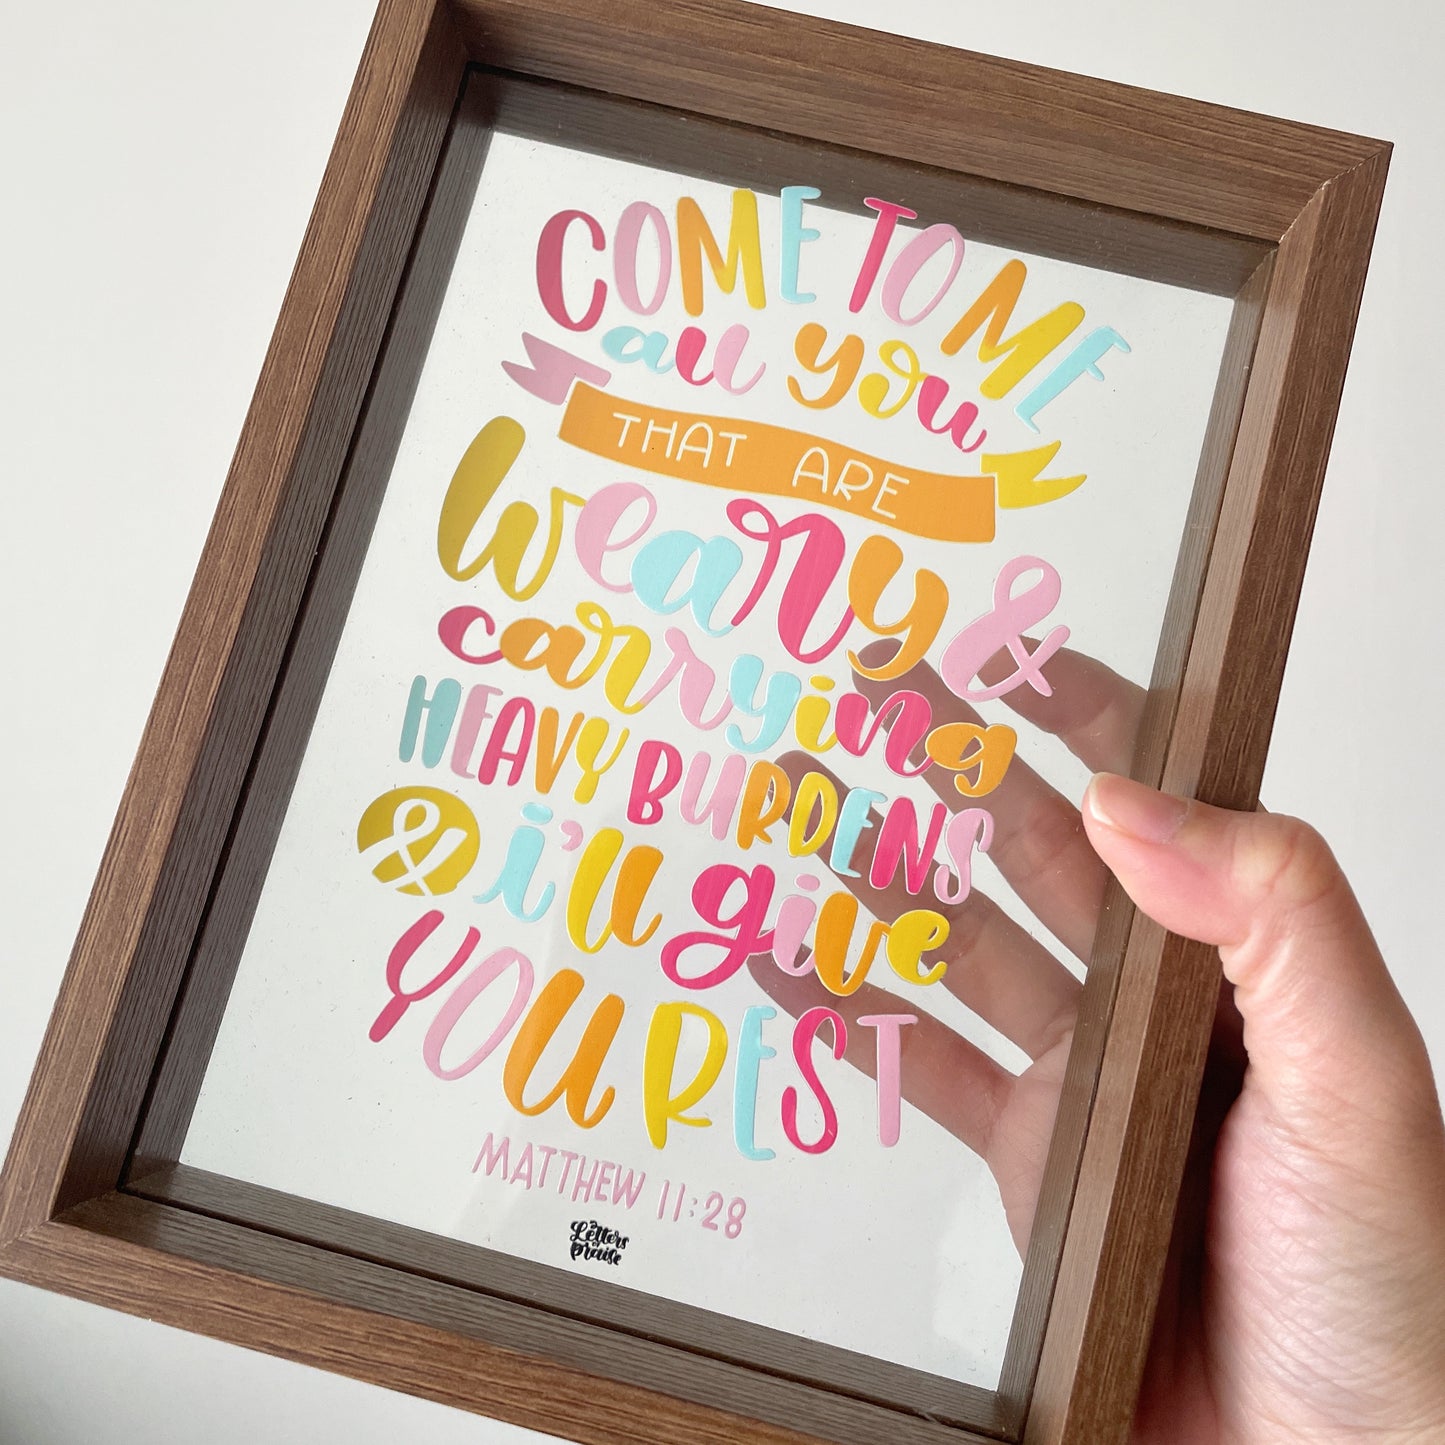 COME TO ME
all you
THAT ARE
weary &
carrying
HEAVY BURDENS
& i'll give
YOU REST
MATTHEW 11:28
Letters
of
Praise